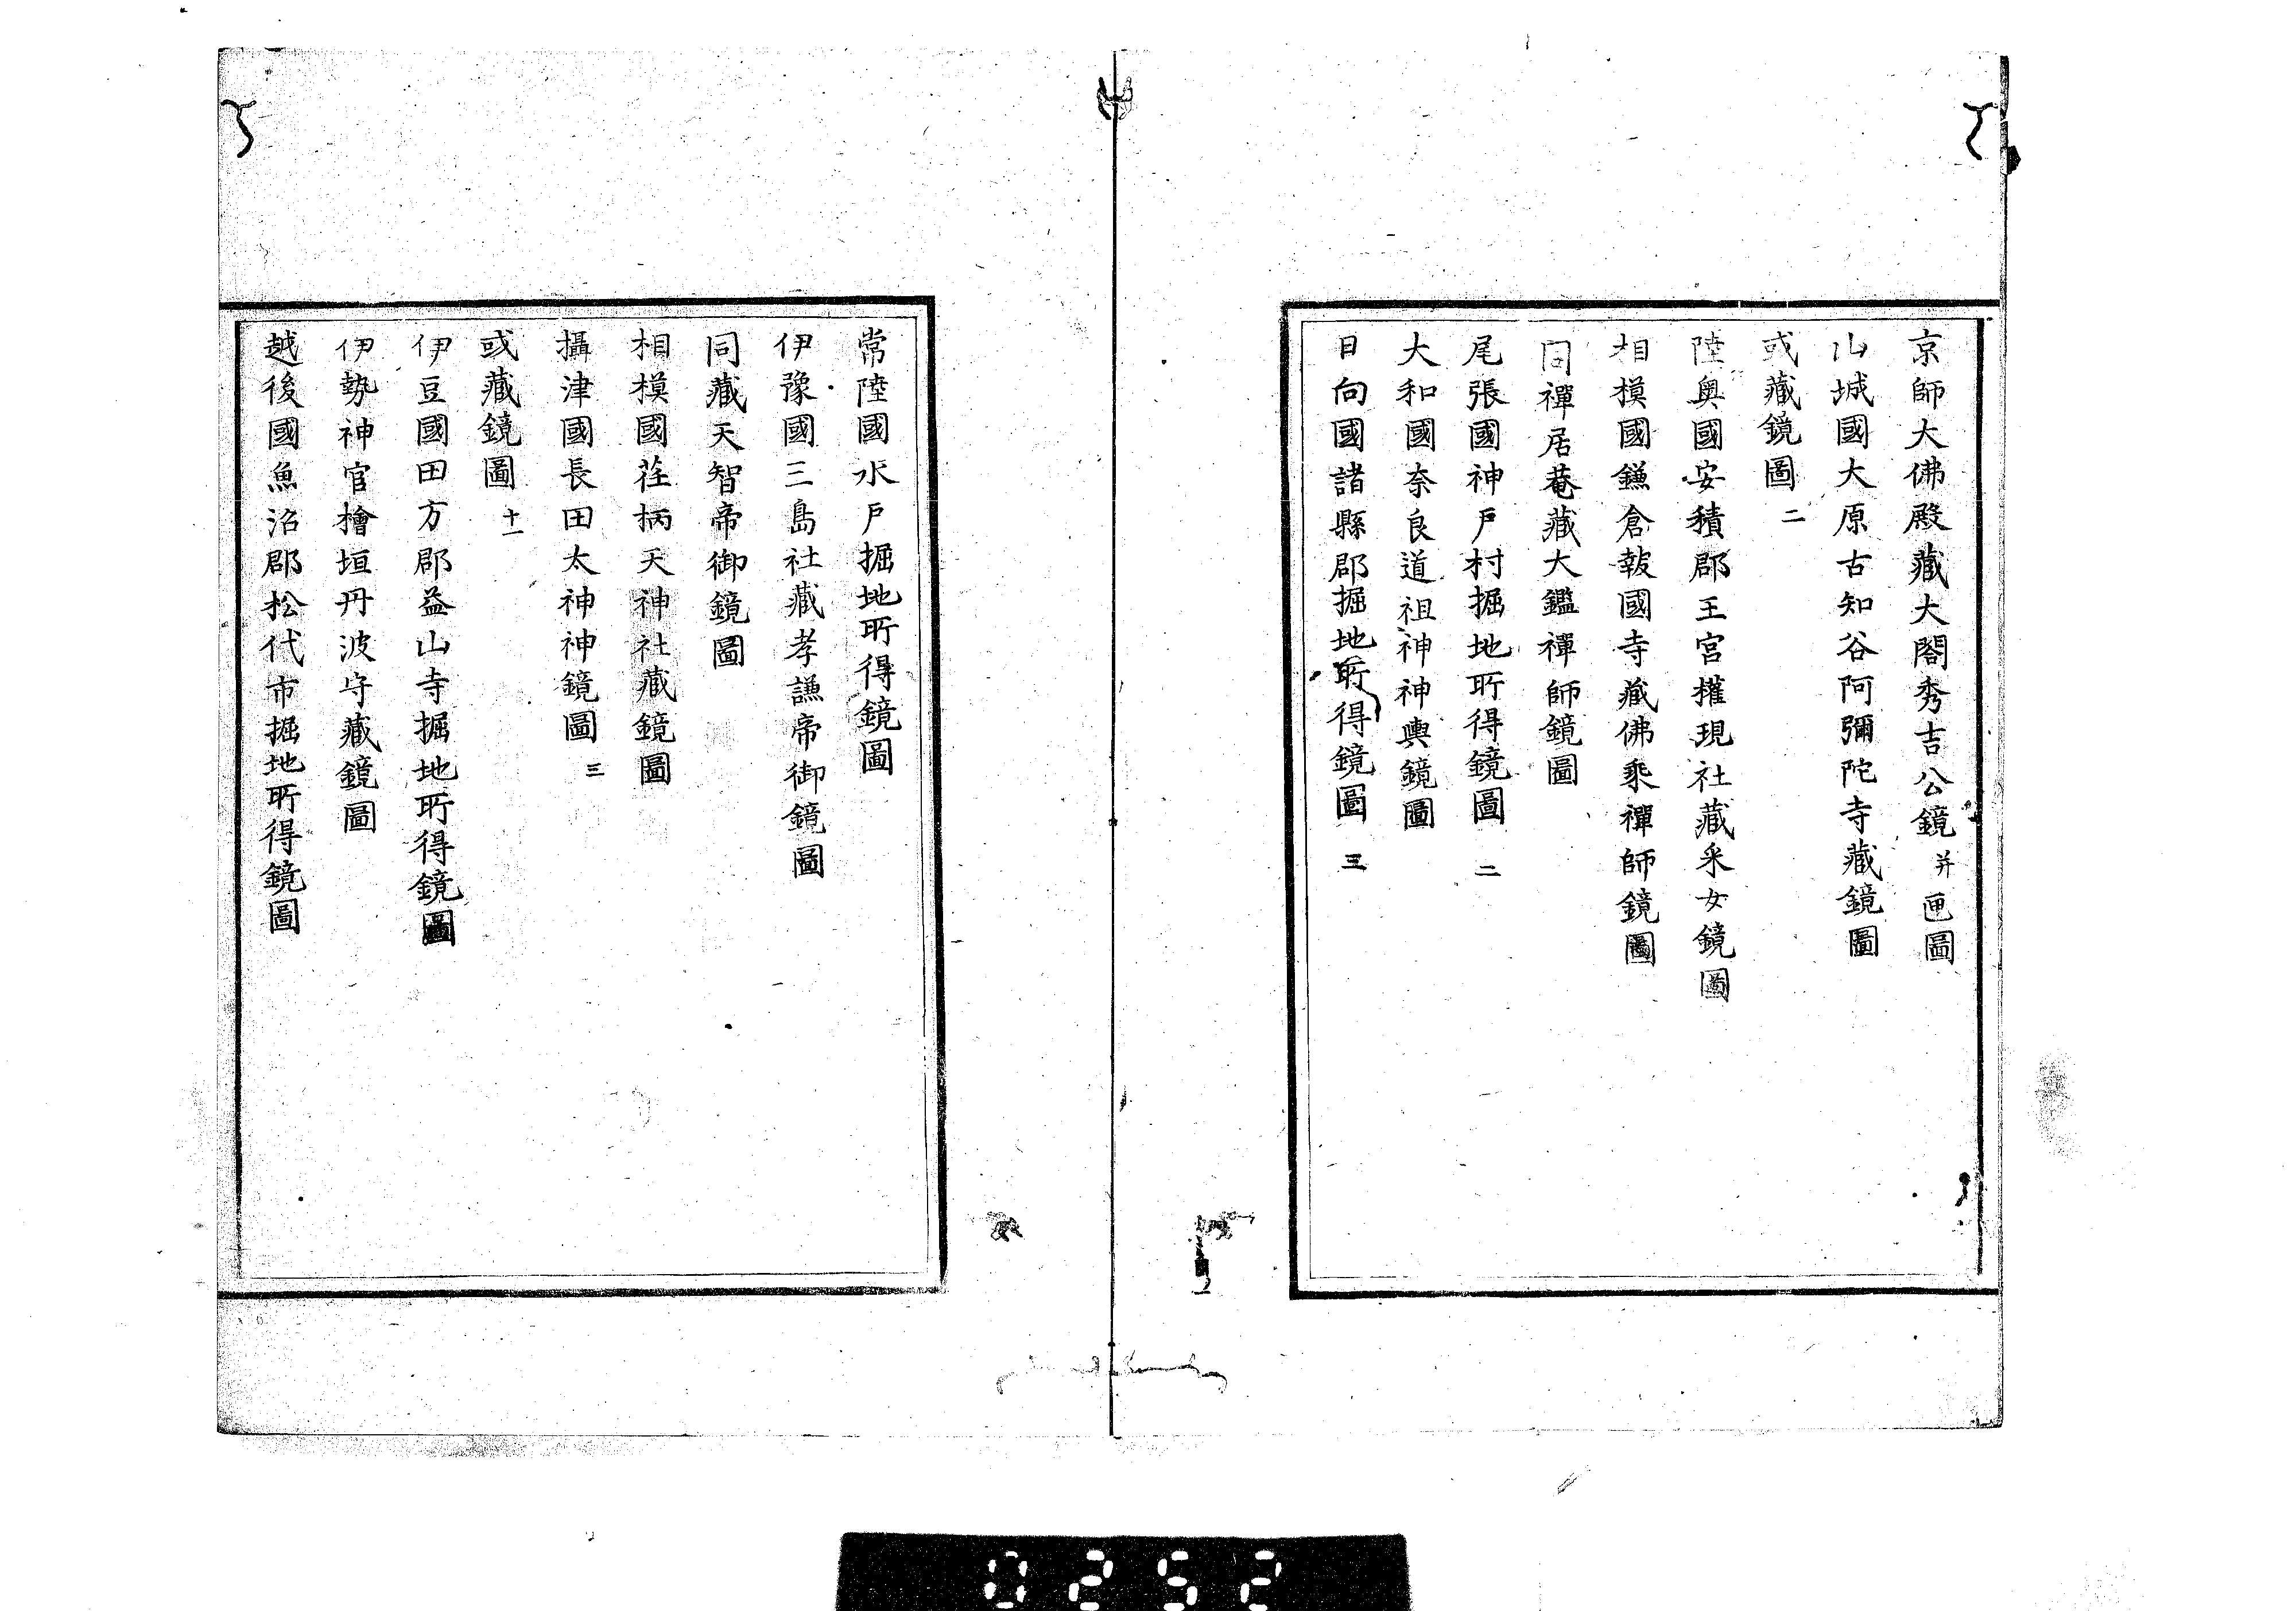 京師大佛殿藏大閤秀吉公鏡并匣圖
山城國大原古知谷阿彌陀寺藏鏡圖
或藏鏡圖 二
陸奥國安積郡王宮權現社藏采女鏡圖
相模國鎌倉報國寺藏佛乘禪師鏡圖
同禪居菴藏大鑑禪師鏡圖
尾張國神戸村掘地所得鏡圖 二
大和國奈良道祖神神輿鏡圖
日向國諸縣郡掘地所得鏡圖 三
常陸國水戸掘地所得鏡圖
伊豫國三島社藏孝謙帝御鏡圖
同藏天智帝御鏡圖
相模國荏柄天神社藏鏡圖
攝津國長田太神神鏡圖 三
或藏鏡圖 十一
伊豆國田方郡益山寺掘地所得鏡圖
伊勢神官檜垣丹波守藏鏡圖
越後國魚沼郡松代市掘地所得鏡圖
0252